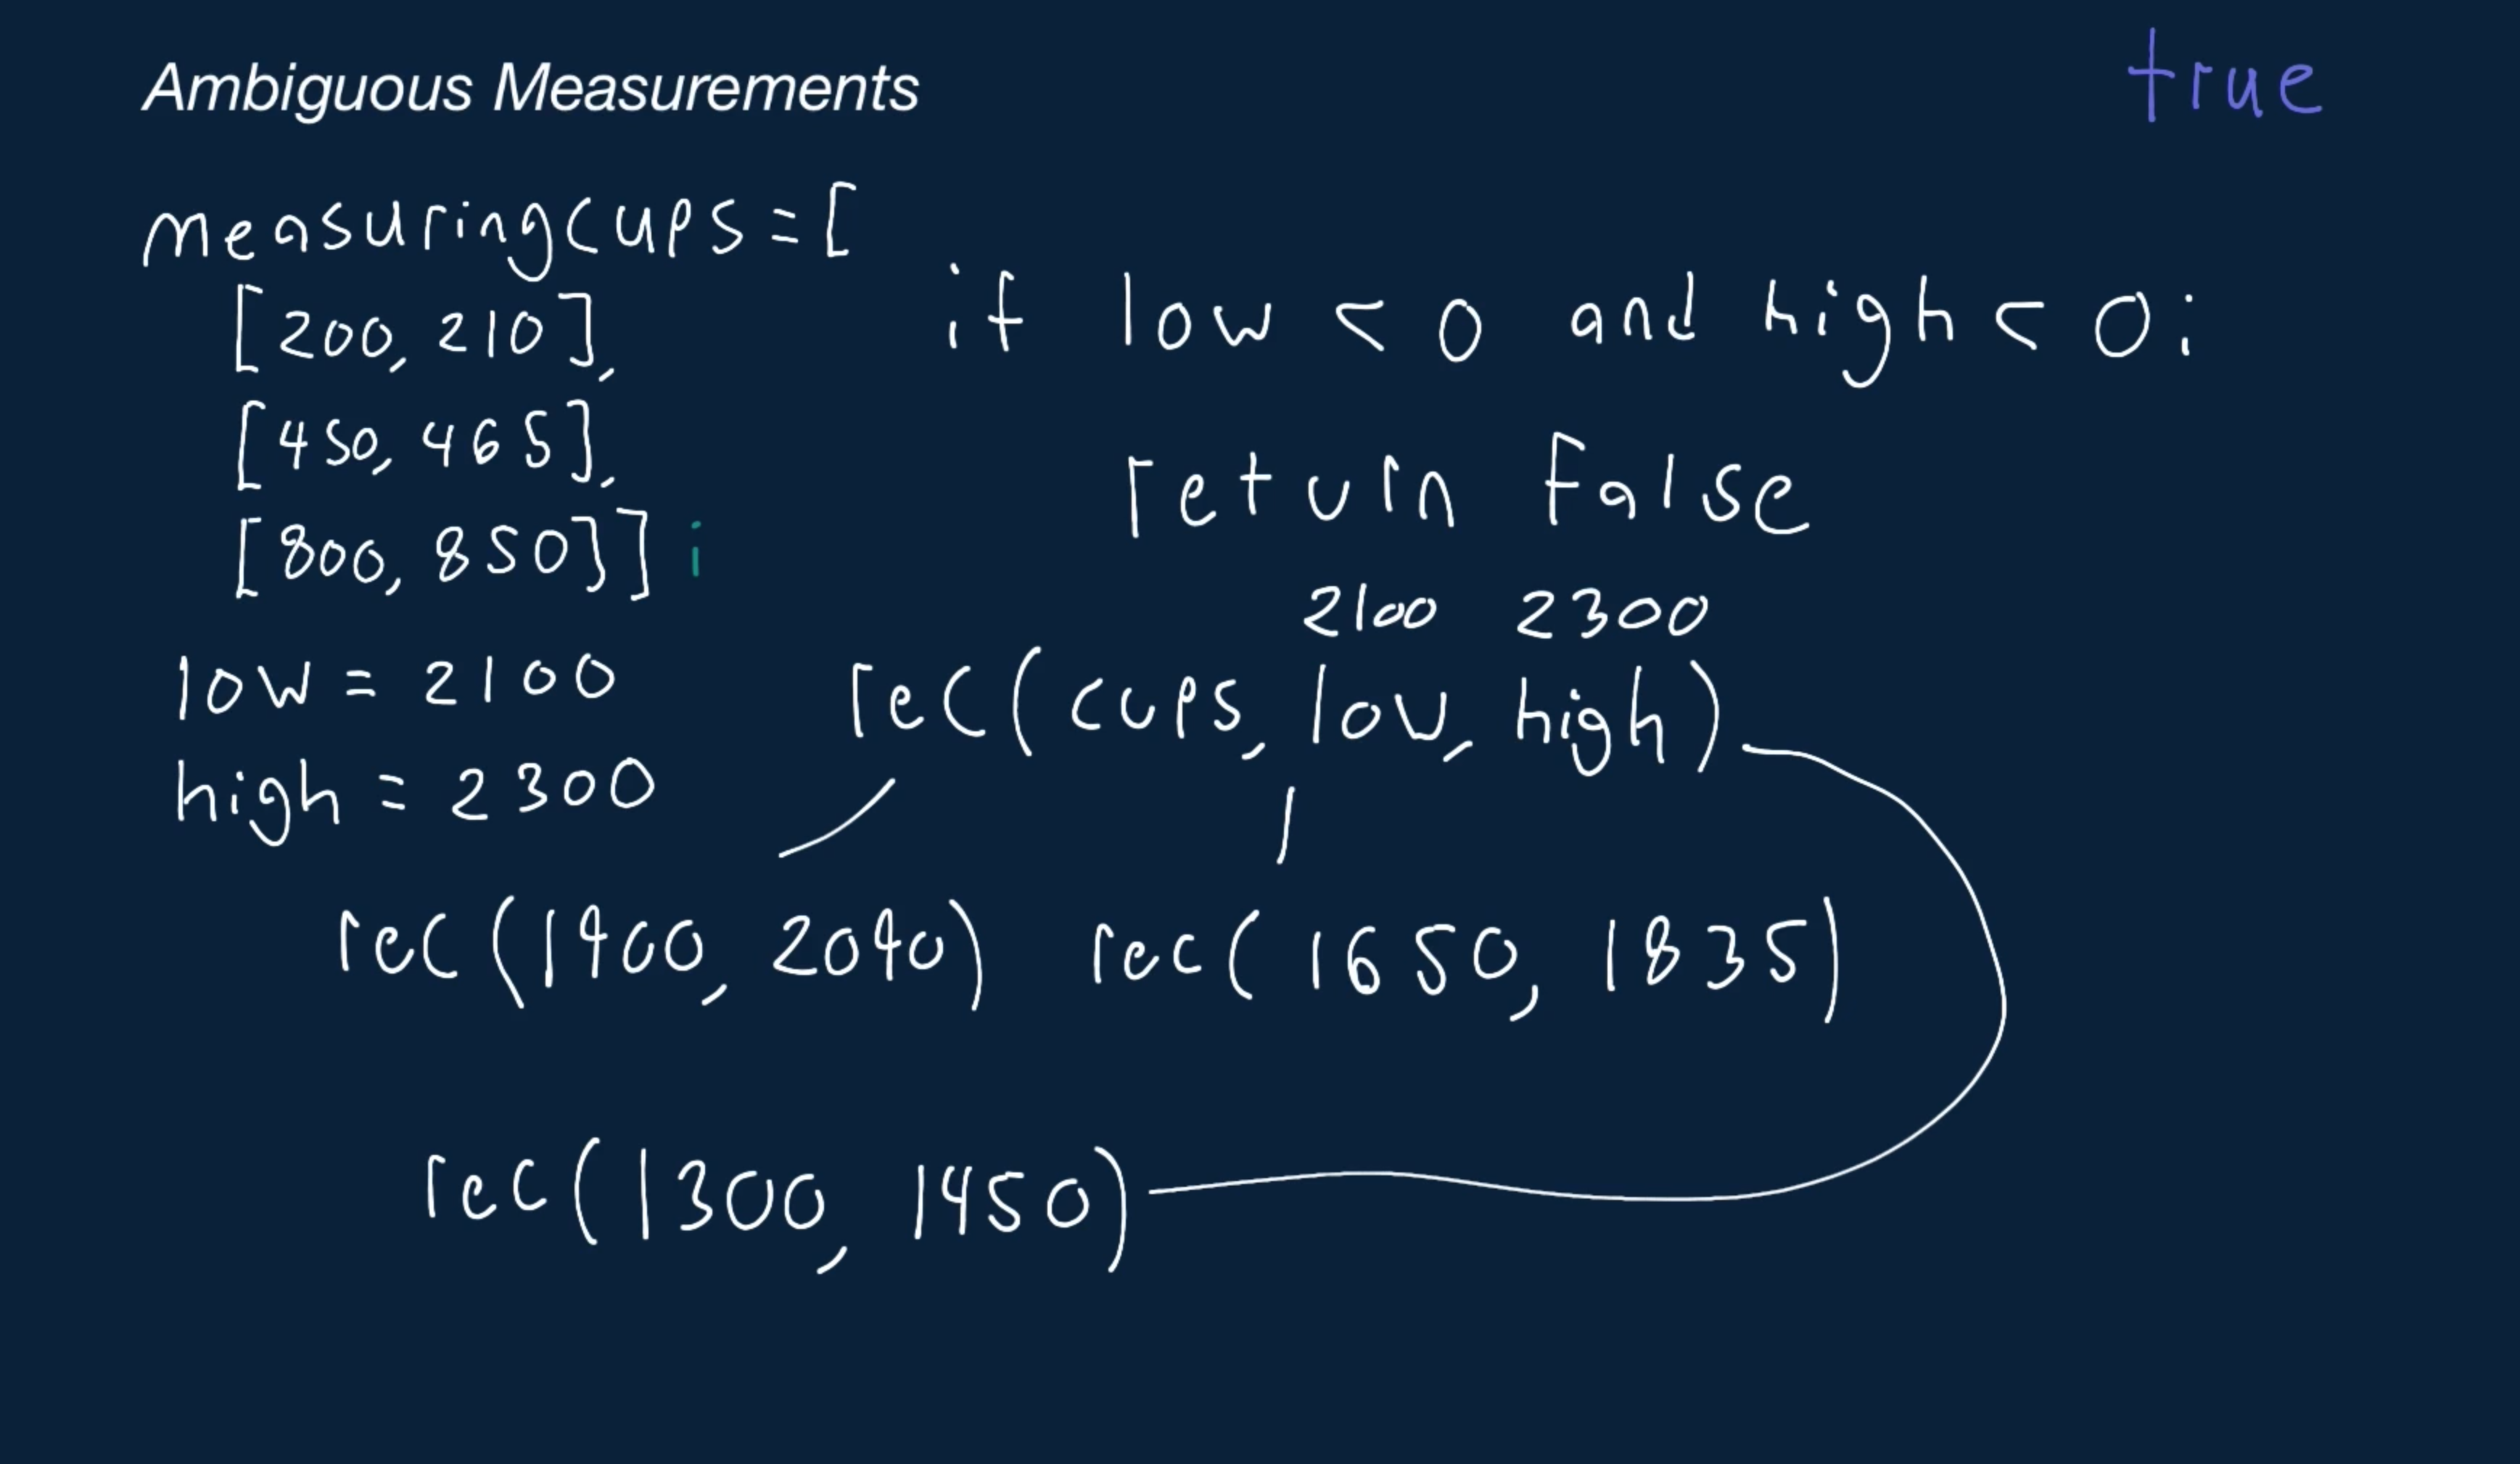 Ambiguous Measurements
true
measuringcups=[
[200, 210],
[450, 465],
[800, 850]]i
low = 2100
high = 2300
if low < 0 and high < 0:
return False
2100 2300
rec(cups, low, high)
rec(1900, 2090) rec(1650, 1835)
rec(1300, 1450)